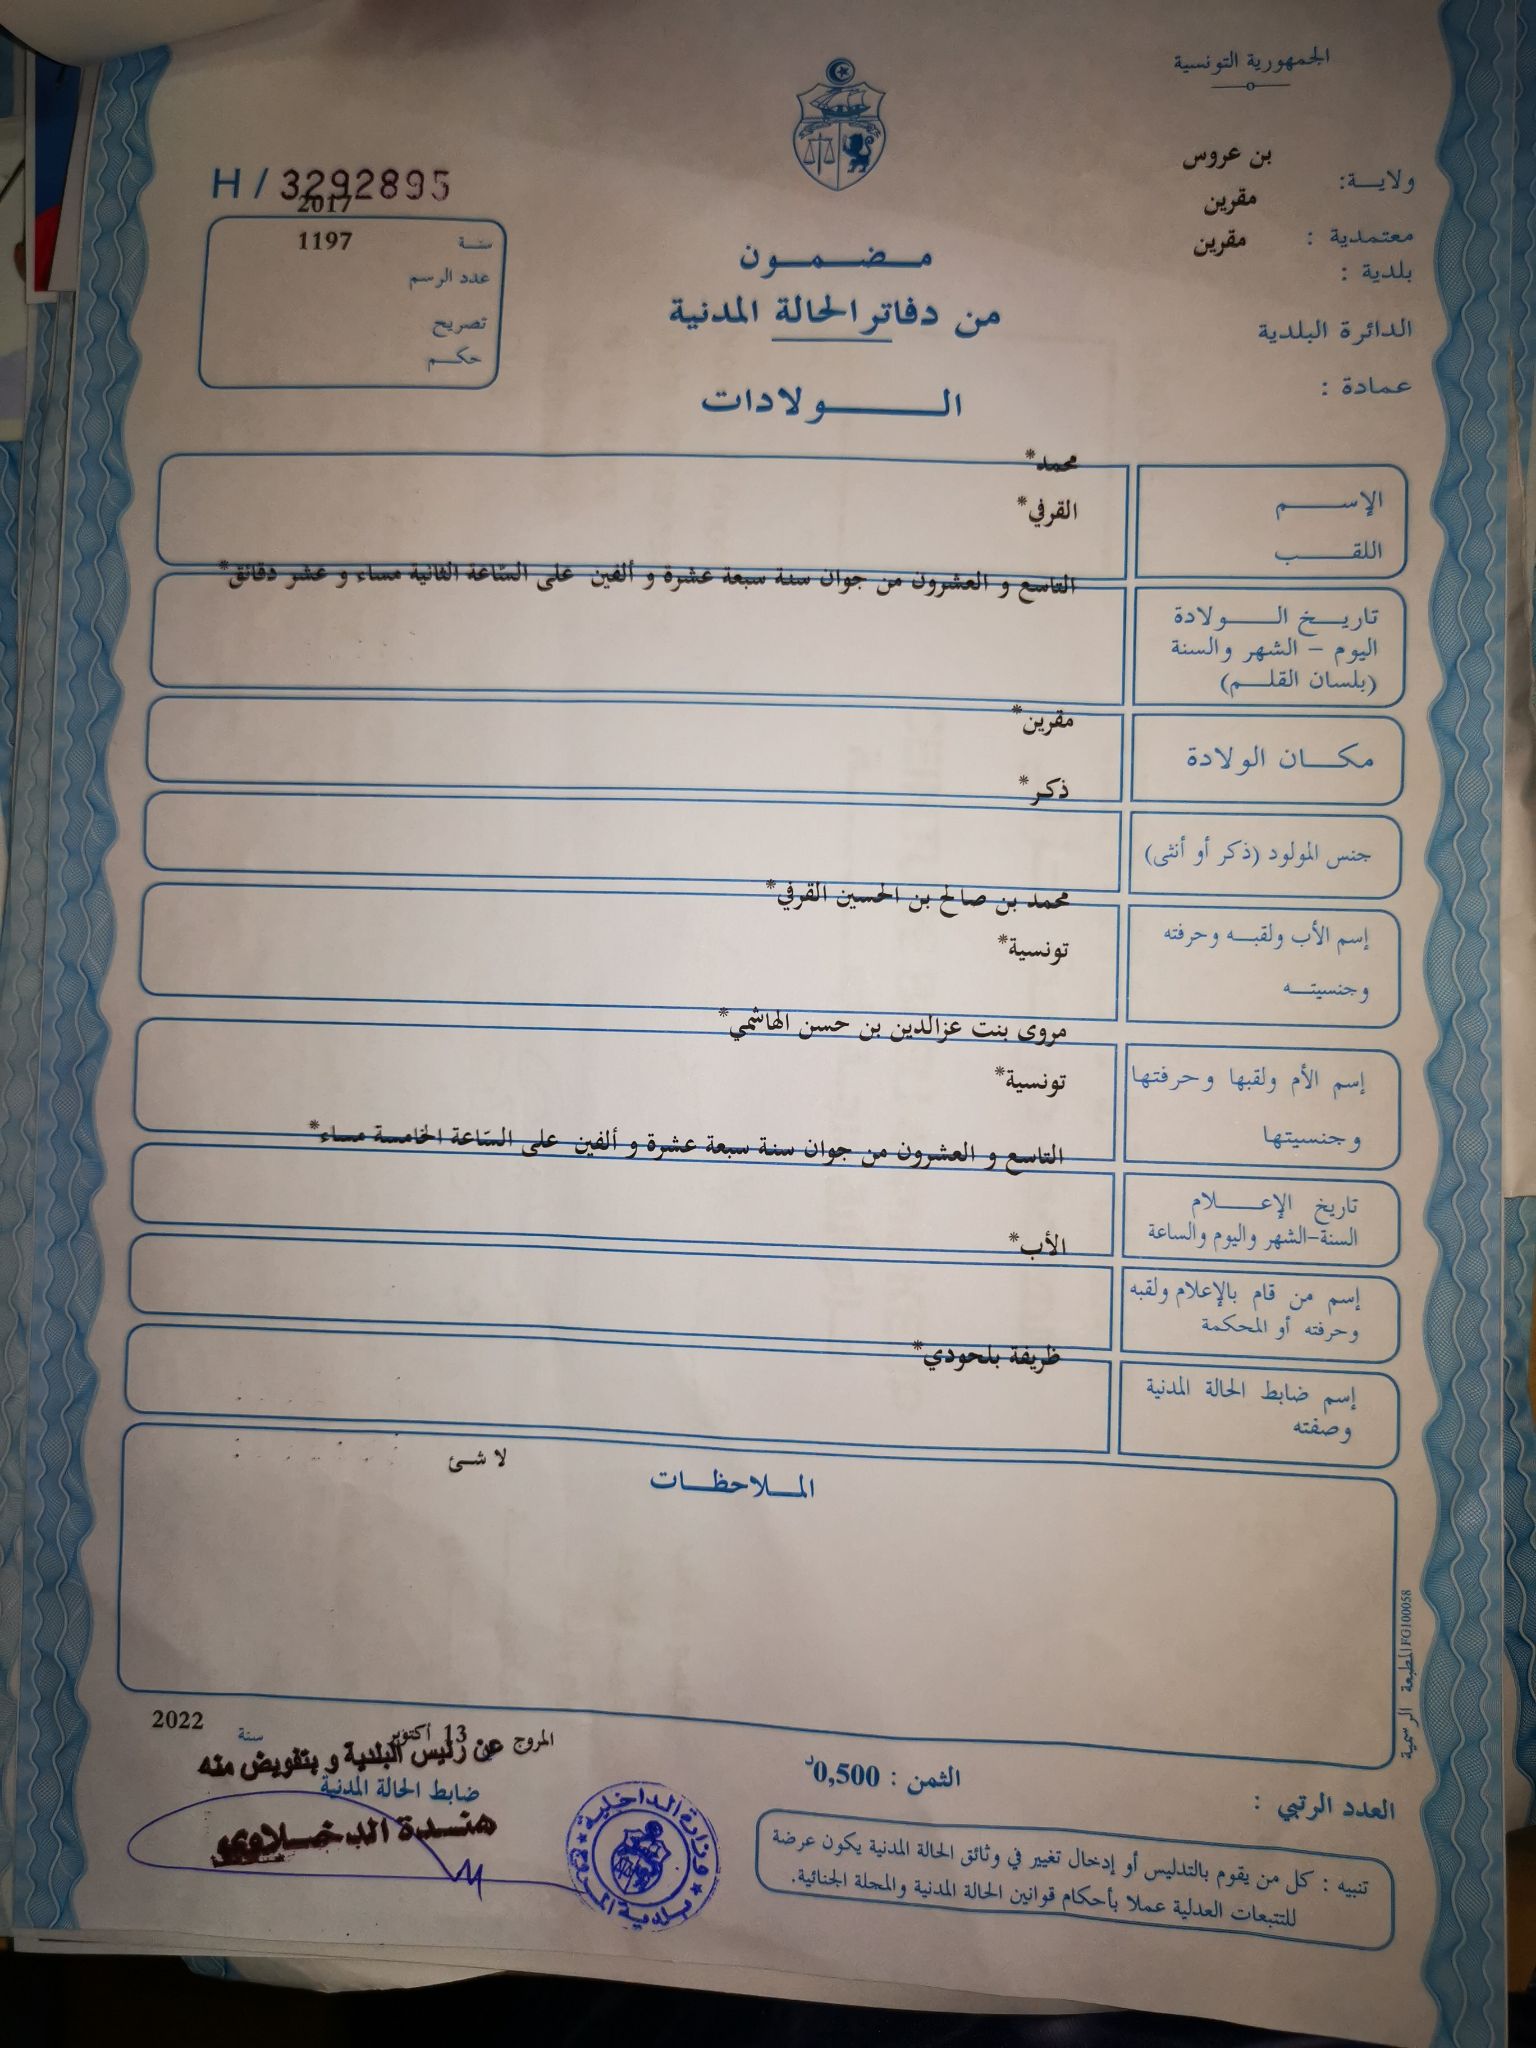 الجمهورية التونسية
ولايــة: بن عروس
معتمدية : مقرين
بلدية : مقرين
الدائرة البلدية
عمادة :
H / 3292895
2017
سنة 1197
عدد الرسم
تصريح
حكم
مضمون
من دفاتر الحالة المدنية
الولادات
محمد*
الإسم
القرفي*
اللقب
التاسع و العشرون من جوان سنة سبعة عشرة و ألفين على السّاعة الثانية مساء و عشر دقائق*
تاريخ الولادة
اليوم - الشهر والسنة
(بلسان القلم)
مقرين*
مكان الولادة
ذكر*
جنس المولود (ذكر أو أنثى)
محمد بن صالح بن الحسين القرفي*
إسم الأب ولقبه وحرفته
تونسية*
وجنسيته
مروى بنت عزالدين بن حسن الهاشمي*
إسم الأم ولقبها وحرفتها
تونسية*
وجنسيتها
التاسع و العشرون من جوان سنة سبعة عشرة و ألفين على السّاعة الخامسة مساء*
تاريخ الإعلام
السنة-الشهر واليوم والساعة
الأب*
إسم من قام بالإعلام ولقبه
وحرفته أو المحكمة
ظريفة بلحودي*
إسم ضابط الحالة المدنية
وصفته
لا شئ
الملاحظات
المطبعة الرسمية FG100058
المروج 13 أكتوبر سنة 2022
عن رئيس البلدية و بتفويض منه
ضابط الحالة المدنية
هنـدة الدخـلاوي
وزارة الداخلية
بلدية المروج
الثمن : 0,500د
العدد الرتبي :
تنبيه : كل من يقوم بالتدليس أو إدخال تغيير في وثائق الحالة المدنية يكون عرضة
للتتبعات العدلية عملا بأحكام قوانين الحالة المدنية والمجلة الجنائية.